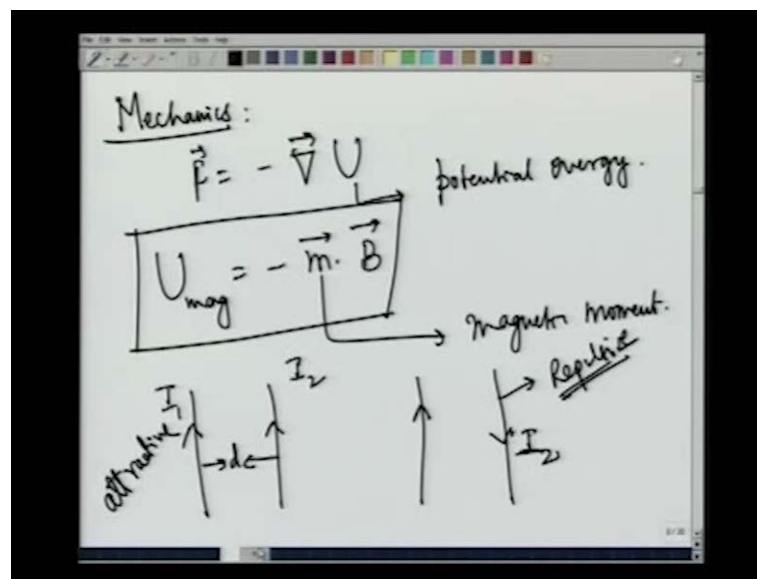 Mechanics:
F⃗ = - ∇⃗ U
potential energy.
U_mag = - m⃗ · B⃗
magnetic moment.
I₁ I₂ Repulsive
attractive d I₂